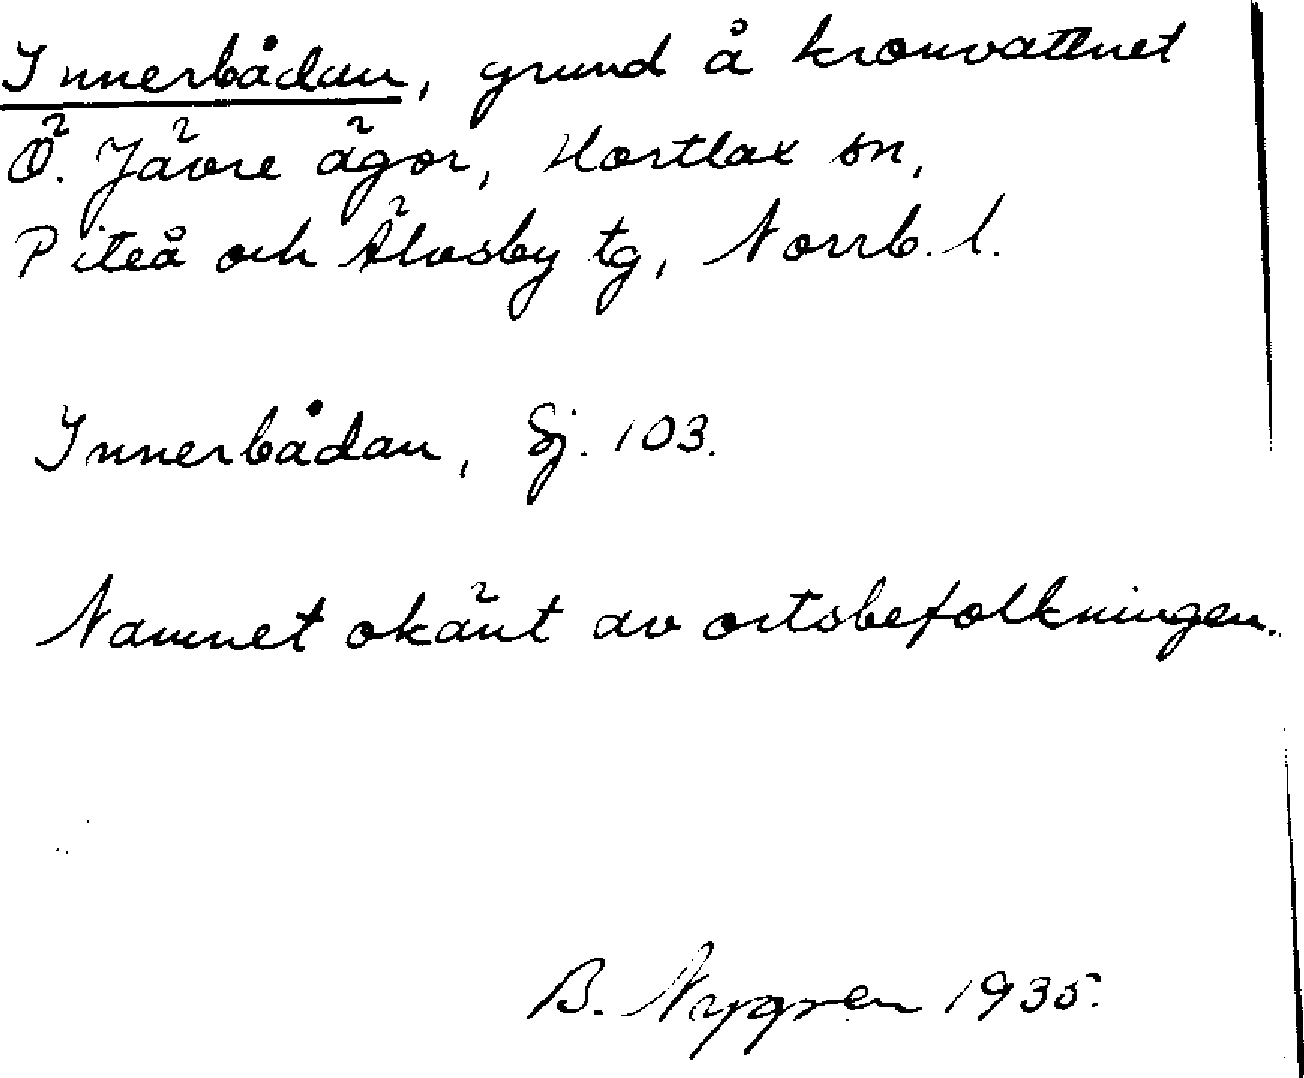 Innerbådan, grund å kronvattnet
Ö. Jävre ägor, Hortlax sn,
Piteå och Älvsby tg, Norrb. l.
Innerbådan, Sj. 103.
Namnet okänt av ortsbefolkningen.
B. Nygren 1935.